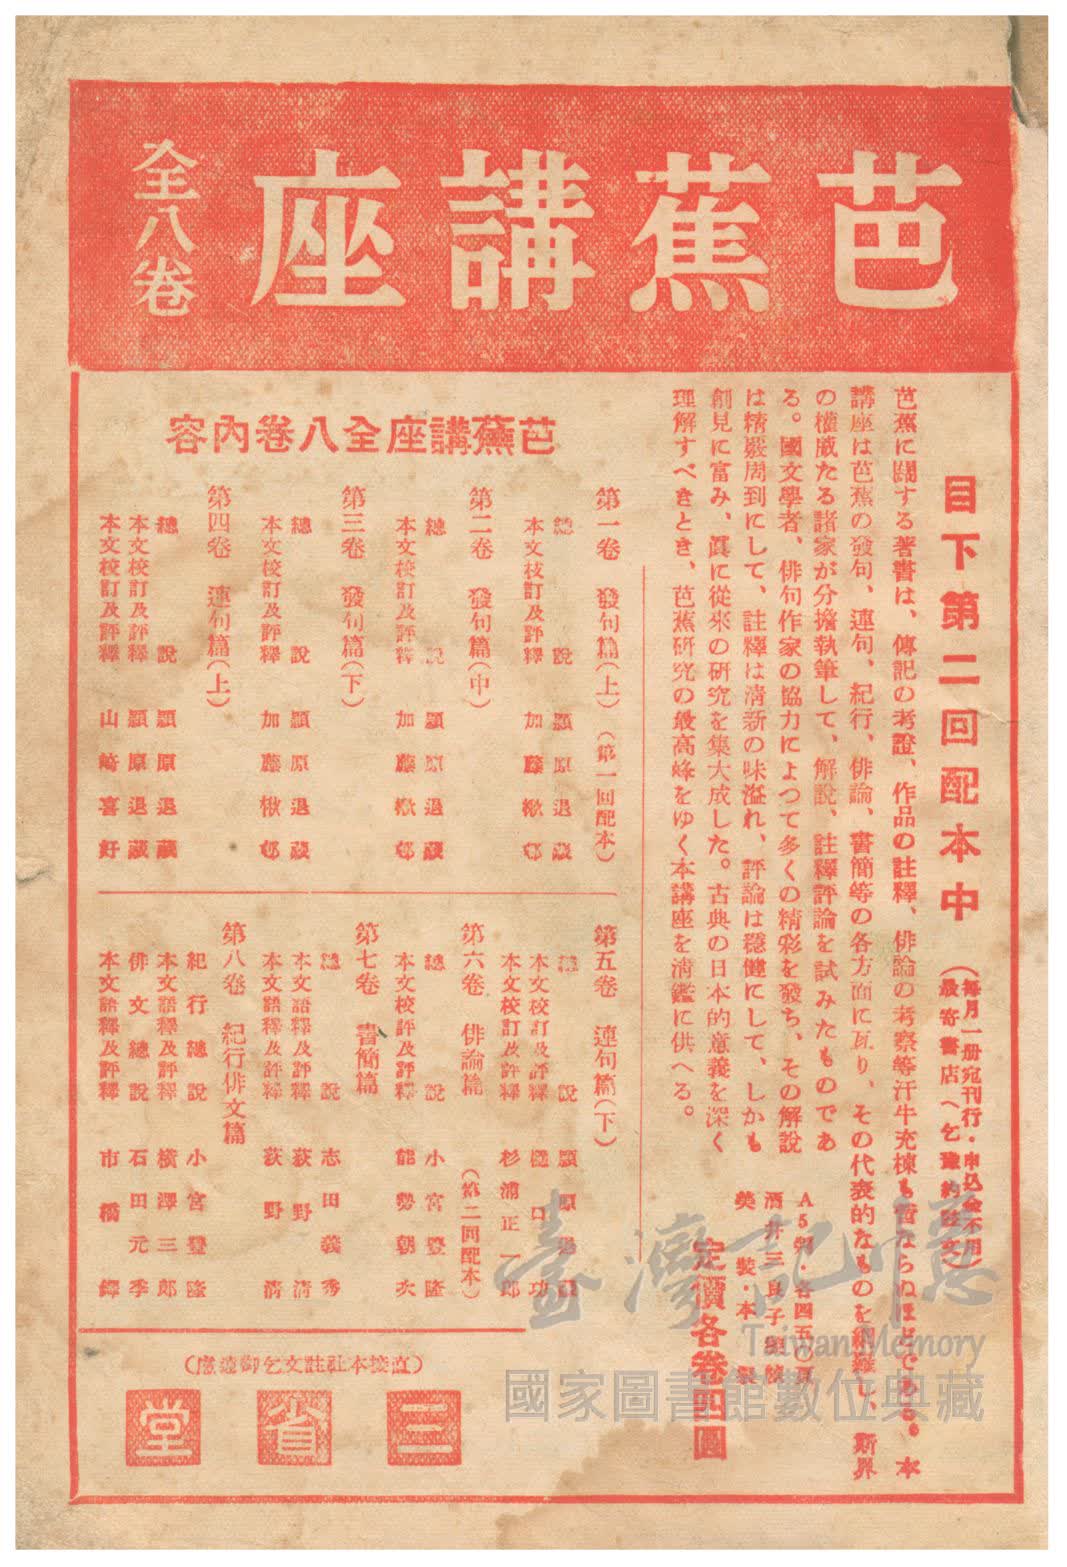 芭蕉講座
全八卷
目下第二回配本中
(每月一册宛刊行・申込金不用)
最寄書店へ乞豫約註文
芭蕉に關する著書は、傳記の考證、作品の註釋、俳論の考察等汗牛充棟も啻ならぬほどである。本
講座は芭蕉の發句、連句、紀行、俳論、書簡等の各方面に亙り、その代表的なものを網羅し、斯界
の權威たる諸家が分擔執筆して、解說、註釋評論を試みたものであ
る。國文學者、俳句作家の協力によつて多くの精彩を發ち、その解說
は精嚴周到にして、註釋は淸新の味溢れ、評論は穩健にして、しかも
創見に富み、眞に從來の硏究を集大成した。古典の日本的意義を深く
理解すべきとき、芭蕉硏究の最高峰をゆく本講座を淸鑑に供へる。
A5判・各四五〇頁
酒井三良子裝幀
美裝・本製
定價各卷四圓
芭蕉講座全八卷內容
第一卷 發句篇(上) (第一回配本)
總說 潁原退藏
本文校訂及評釋 加藤楸邨
第二卷 發句篇(中)
總說 潁原退藏
本文校訂及評釋 加藤楸邨
第三卷 發句篇(下)
總說 潁原退藏
本文校訂及評釋 加藤楸邨
第四卷 連句篇(上)
總說 潁原退藏
本文校訂及評釋 潁原退藏
本文校訂及評釋 山崎喜好
第五卷 連句篇(下)
總說 潁原退藏
本文校訂及評釋 樋口功
本文校訂及評釋 杉浦正一郎
第六卷 俳論篇 (第二回配本)
總說 小宮豐隆
本文校評及評釋 能勢朝次
第七卷 書簡篇
總說 志田義秀
本文語釋及評釋 荻野淸
本文語釋及評釋 荻野淸
第八卷 紀行俳文篇
紀行總說 小宮豐隆
本文語釋及評釋 橫澤三郎
俳文總說 石田元季
本文語釋及評釋 市橋鐸
(直接本社註文乞御遠慮)
三省堂
臺灣記憶
Taiwan Memory
國家圖書館數位典藏